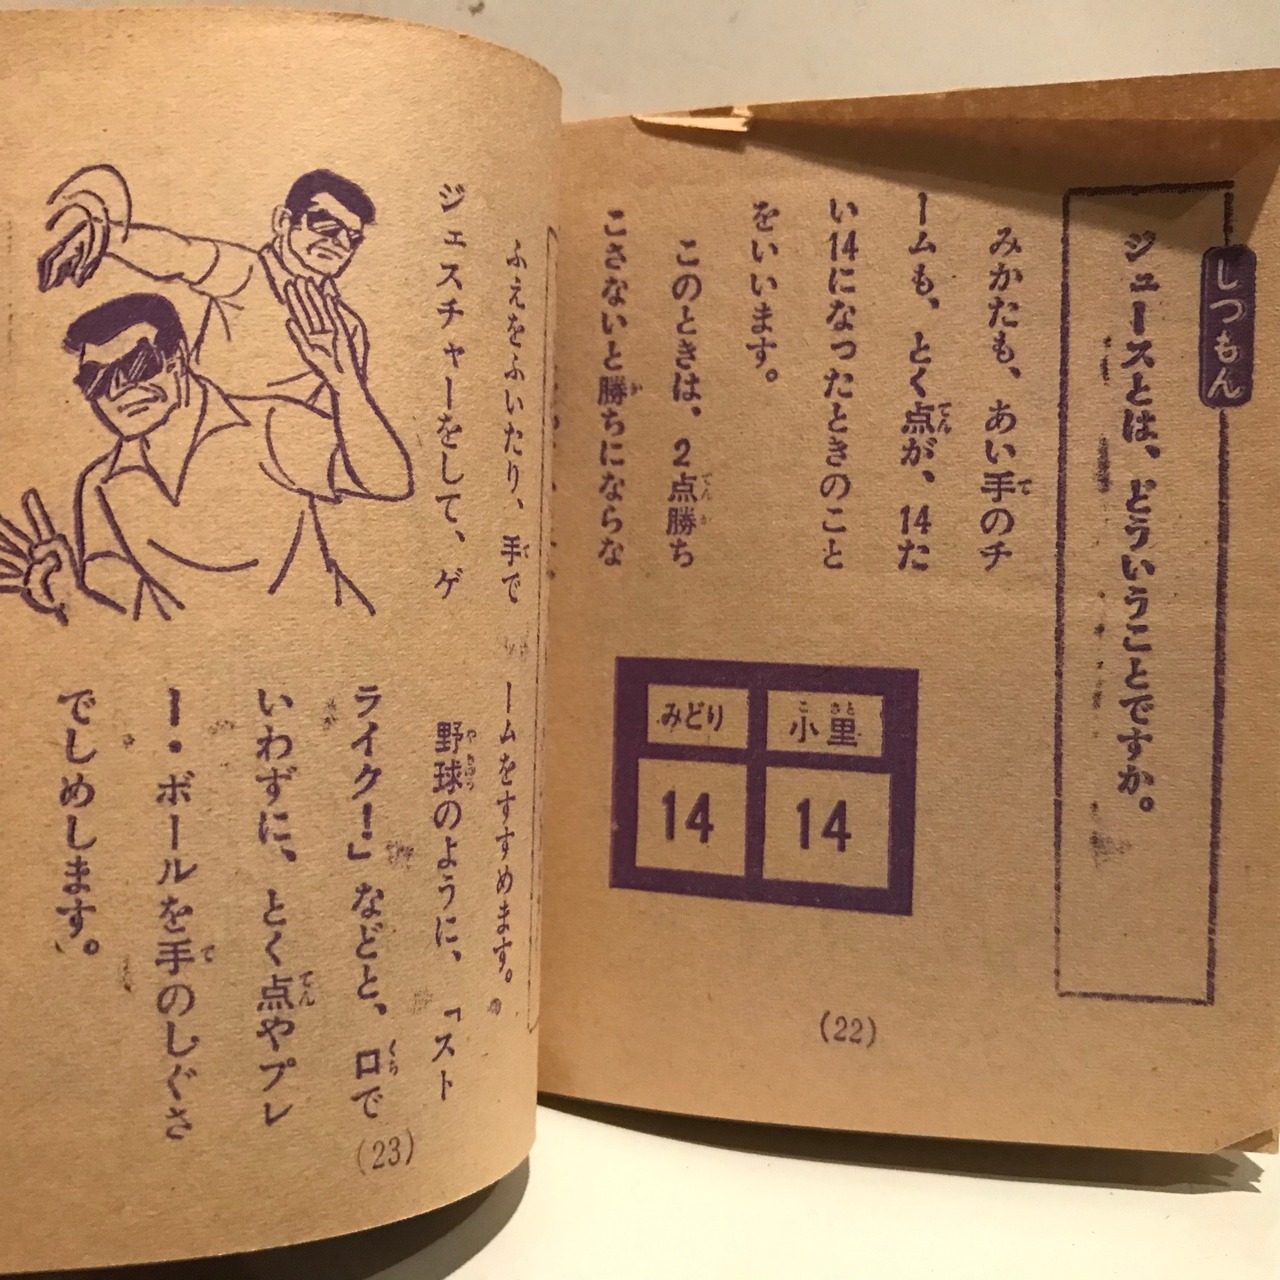 しつもん
ジュースとは、どういうことですか。
みかたも、あい手のチ
ームも、とく点が、14た
い14になったときのこと
をいいます。
このときは、2点勝ち
こさないと勝ちにならな
小里
みどり
14
14
(22)
ふえをふいたり、手で
ジェスチャーをして、ゲ
ームをすすめます。
野球のように、「スト
ライク!」などと、口で
いわずに、とく点やプレ
ー・ボールを手のしぐさ
でしめします。
(23)